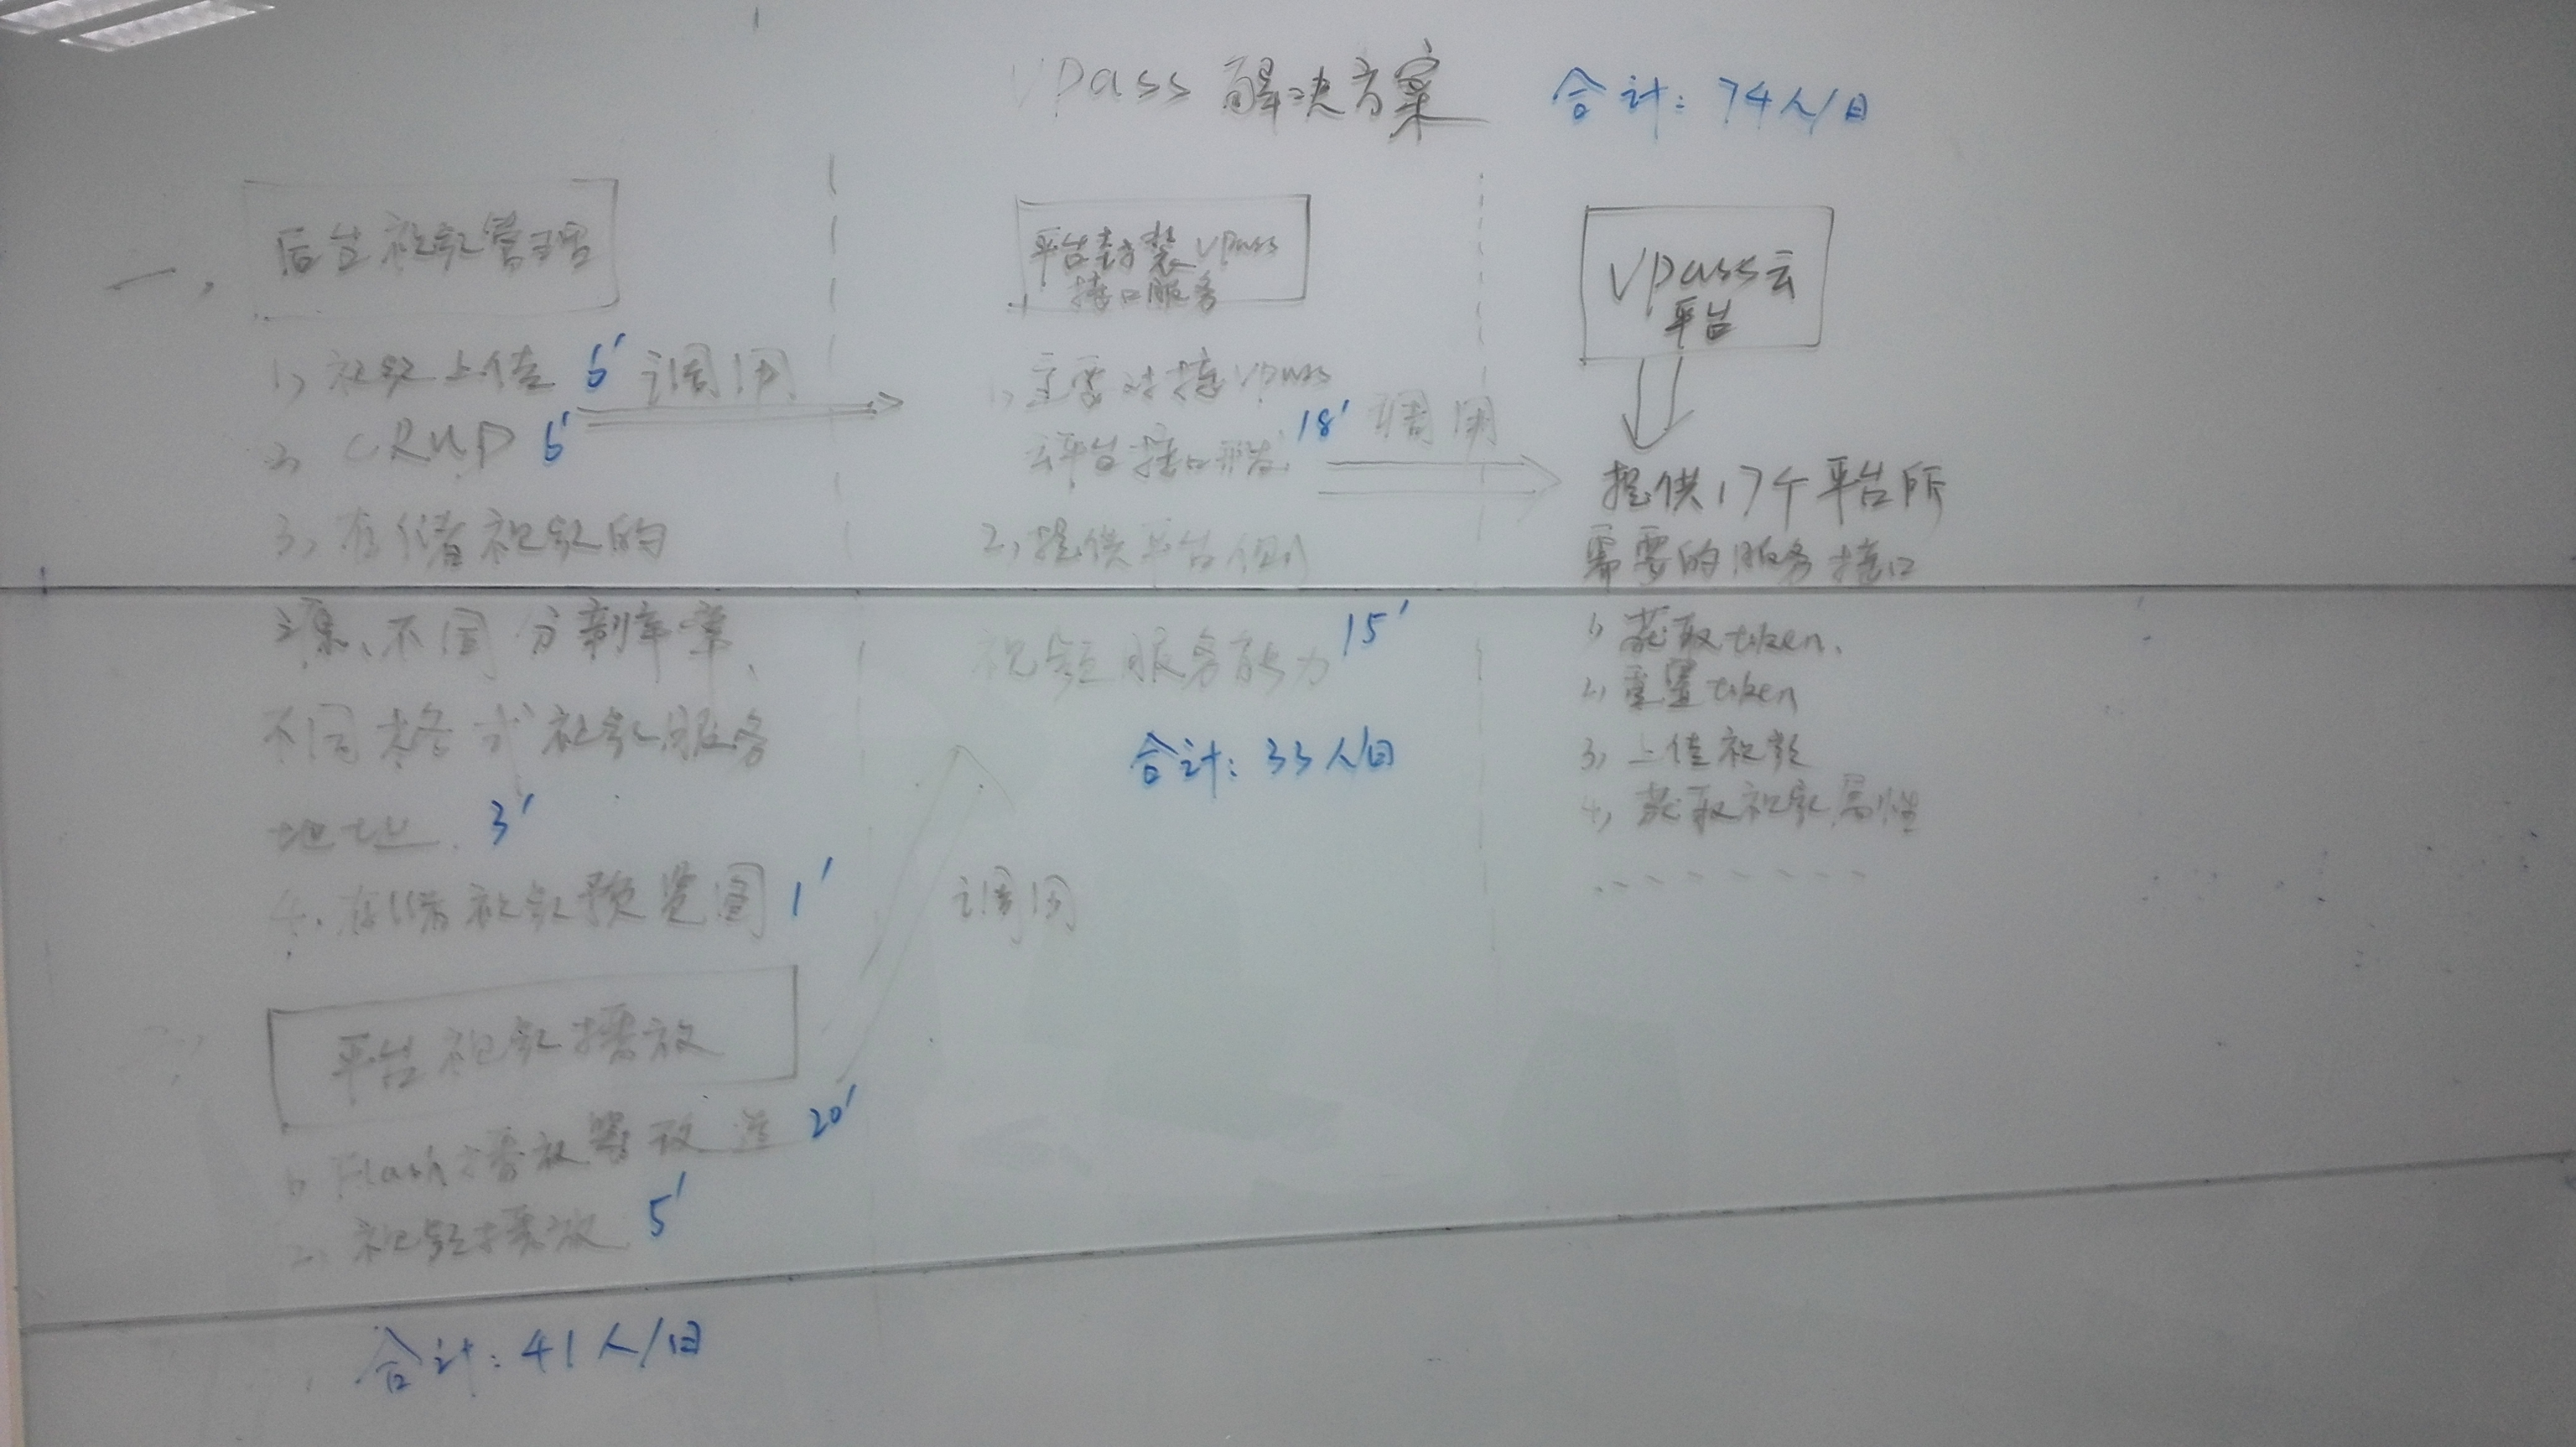 VPass 解决方案
合计: 74人/日
一、
后台视频管理
1, 视频上传 6'
调用
2, CRUD 6'
3, 存储视频的
源、不同分割率章、
不同格式视频服务
地址. 3'
4. 存储视频预览图 1'
平台视频播放
1, Flash播放器改造 20'
2. 视频播放 5'
合计: 41人/日
平台封装VPass
接口服务
1, 主要对接VPass
云平台接口开发. 18'
调用
2, 提供平台侧
视频服务能力 15'
合计: 33人/日
调用
VPass云
平台
提供17个平台所
需要的服务接口
1, 获取token.
2, 重置token
3, 上传视频
4, 获取视频属性